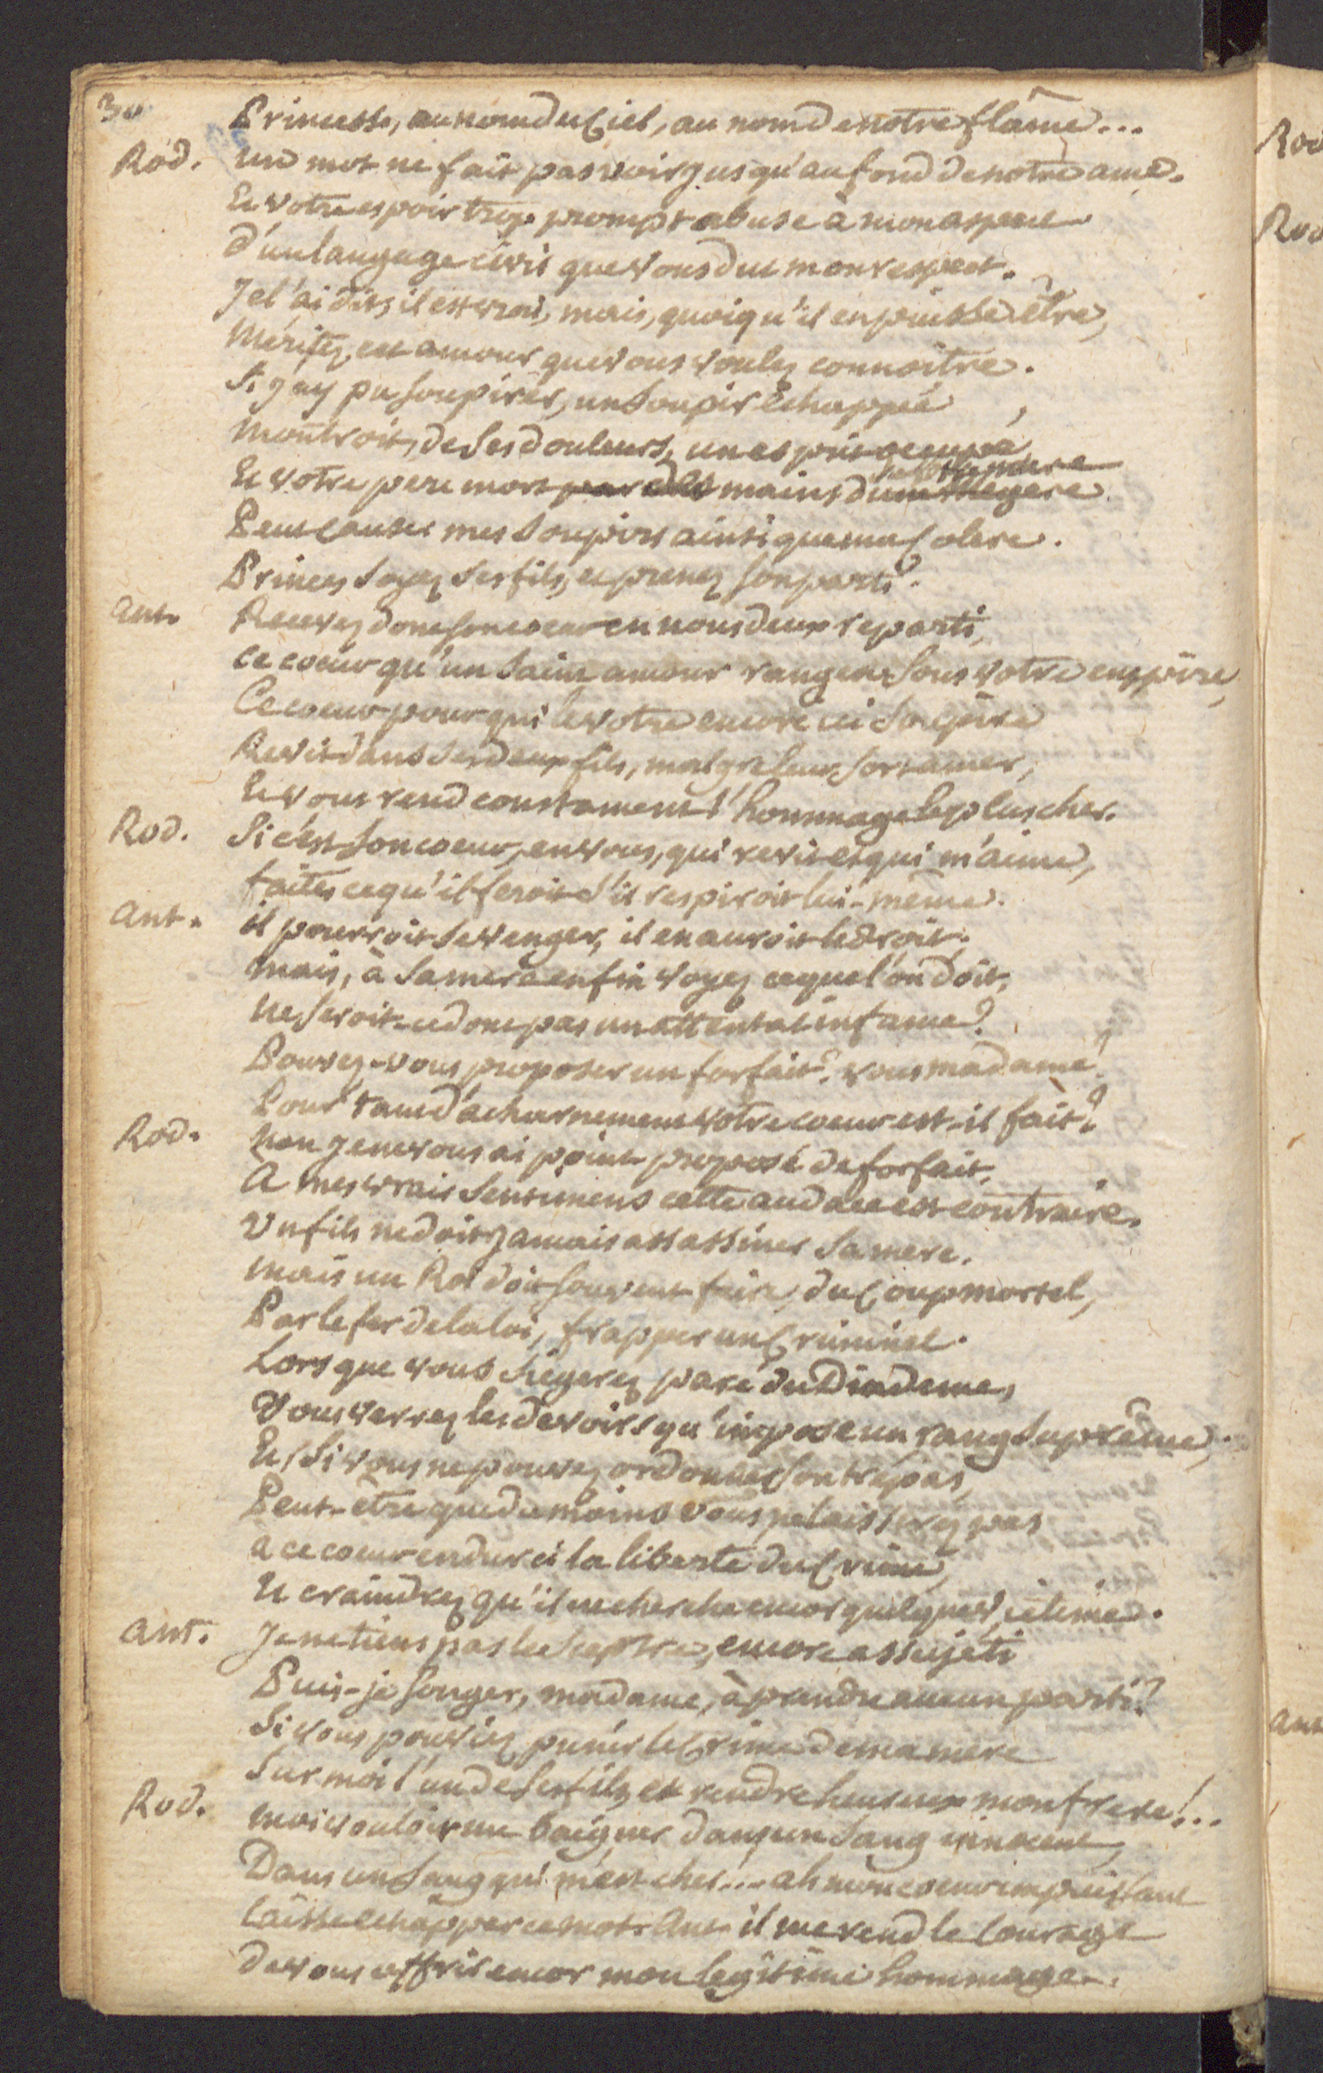 30
Princesse, au nom du Ciel, au nom de notre flâme...
Rod. un mot ne fait pas voir jusqu'au fond de notre ame.
Et votre espoir trop prompt abuse à mon aspect
d'un langage civil que vous dut mon respect.
Je l'ai dit, il est vrai, mais, quoiqu'il en puisse être,
Méritez, cet amour que vous voulez connoître.
Si j'ay pu soupirer, un soupir échappé,
Montroit, de ses douleurs, un esprit occupé
Et votre pere mort par des mains d'une Megere
Peut causer mes soupirs ainsi que ma Colere.
Princes soyez ses fils, et prenez son parti.
Ant. Recevez donc son coeur en nous deux reparti,
ce coeur qu'un saint amour rangea sous votre empire,
Ce coeur pour qui le votre encore ici soupire
Revit dans ses deux fils, malgré leur sort amer,
Et vous rend constament l'hommage le plus cher.
Rod. Si c'est son coeur, en vous, qui revit et qui m'aime,
faites ce qu'il feroit s'il respiroit lui-même.
Ant. il pourroit se venger, il en auroit le droit.
mais, à sa mere enfin voyez ce que l'on doit,
Ne seroit-ce donc pas un attentat infame?
Pouvez-vous proposer un forfait? vous madame?
Pour tant d'acharnement votre coeur est-il fait?
Rod. Non je ne vous ai point proposé de forfait.
A mes vrais sentimens cette audace est contraire.
Un fils ne doit jamais assassiner sa mere.
mais un Roi doit souvent faire, du Coup mortel,
Par le fer de la loi, frapper un Criminel.
Lorsque vous siégerez paré du Diademe,
Vous verrez les devoirs qu'impose un rang suprême,
Et, si vous ne pouvez ordonner son trépas,
Peut-être que du moins vous ne laisserez pas
a ce coeur endurci la liberté du Crime,
Et craindrez qu'il ne cherche encor quelque Victime.
Ant. Je ne tiens pas le Sceptre, encore assujeti
Puis-je songer, madame, à prendre aucun parti?
Si vous pouviez punir le Crime de ma mere
Sur moi l'un de ses fils, et rendre heureux mon frere!...
Rod. moi vouloir me baigner dans un sang innocent,
Dans un sang qui m'est cher... ah mon coeur impuissant
Laisse échapper ce mot. Ant. il me rend le Courage
de vous offrir encor mon legitime hommage.
Rod
Rod
Ant